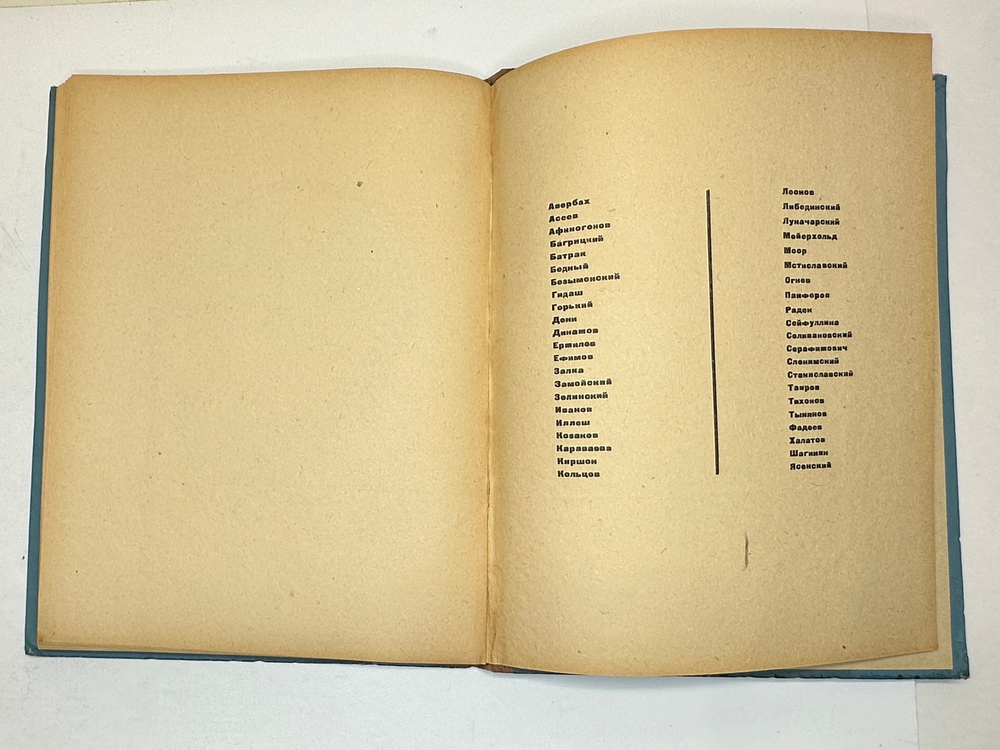 Авербах
Асеев
Афиногенов
Багрицкий
Батрак
Бедный
Безыменский
Гидаш
Горький
Дени
Динамов
Ермилов
Ефимов
Залка
Замойский
Зелинский
Иванов
Иллеш
Козаков
Караваева
Киршон
Кольцов
Леонов
Либединский
Луначарский
Мейерхольд
Моор
Мстиславский
Огнев
Панферов
Радек
Сейфуллина
Селивановский
Серафимович
Слонимский
Станиславский
Таиров
Тихонов
Тынянов
Фадеев
Халатов
Шагинян
Ясенский